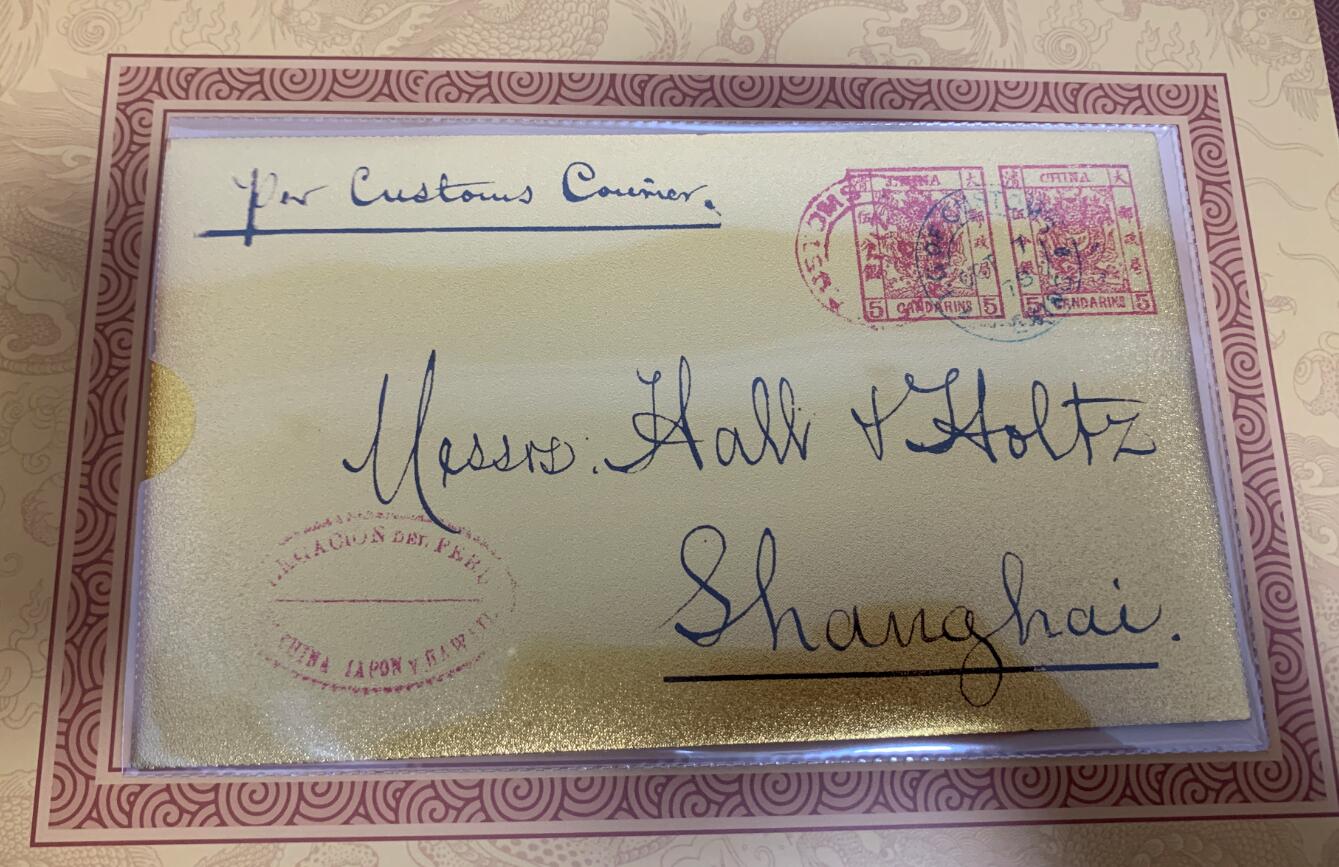 Per Customs Courier.
CUSTOMS
CHINA
大
5 CANDARINS 5
CHINA
大
5 CANDARINS 5
CUSTOMS
Messrs. Hall & Holtz
Shanghai.
LEGACION DEL PERU
CHINA JAPON Y HAWAII